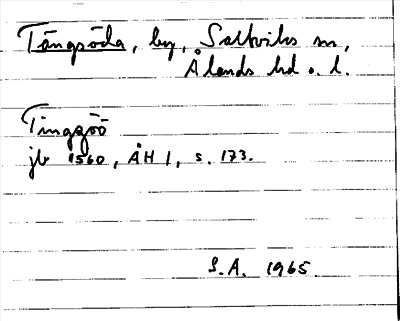 Tängsöda, by, Saltviks sn,
Ålands hd o. l.
Tinggöö
jb 1560, ÅH 1, s. 173.
S.A. 1965.